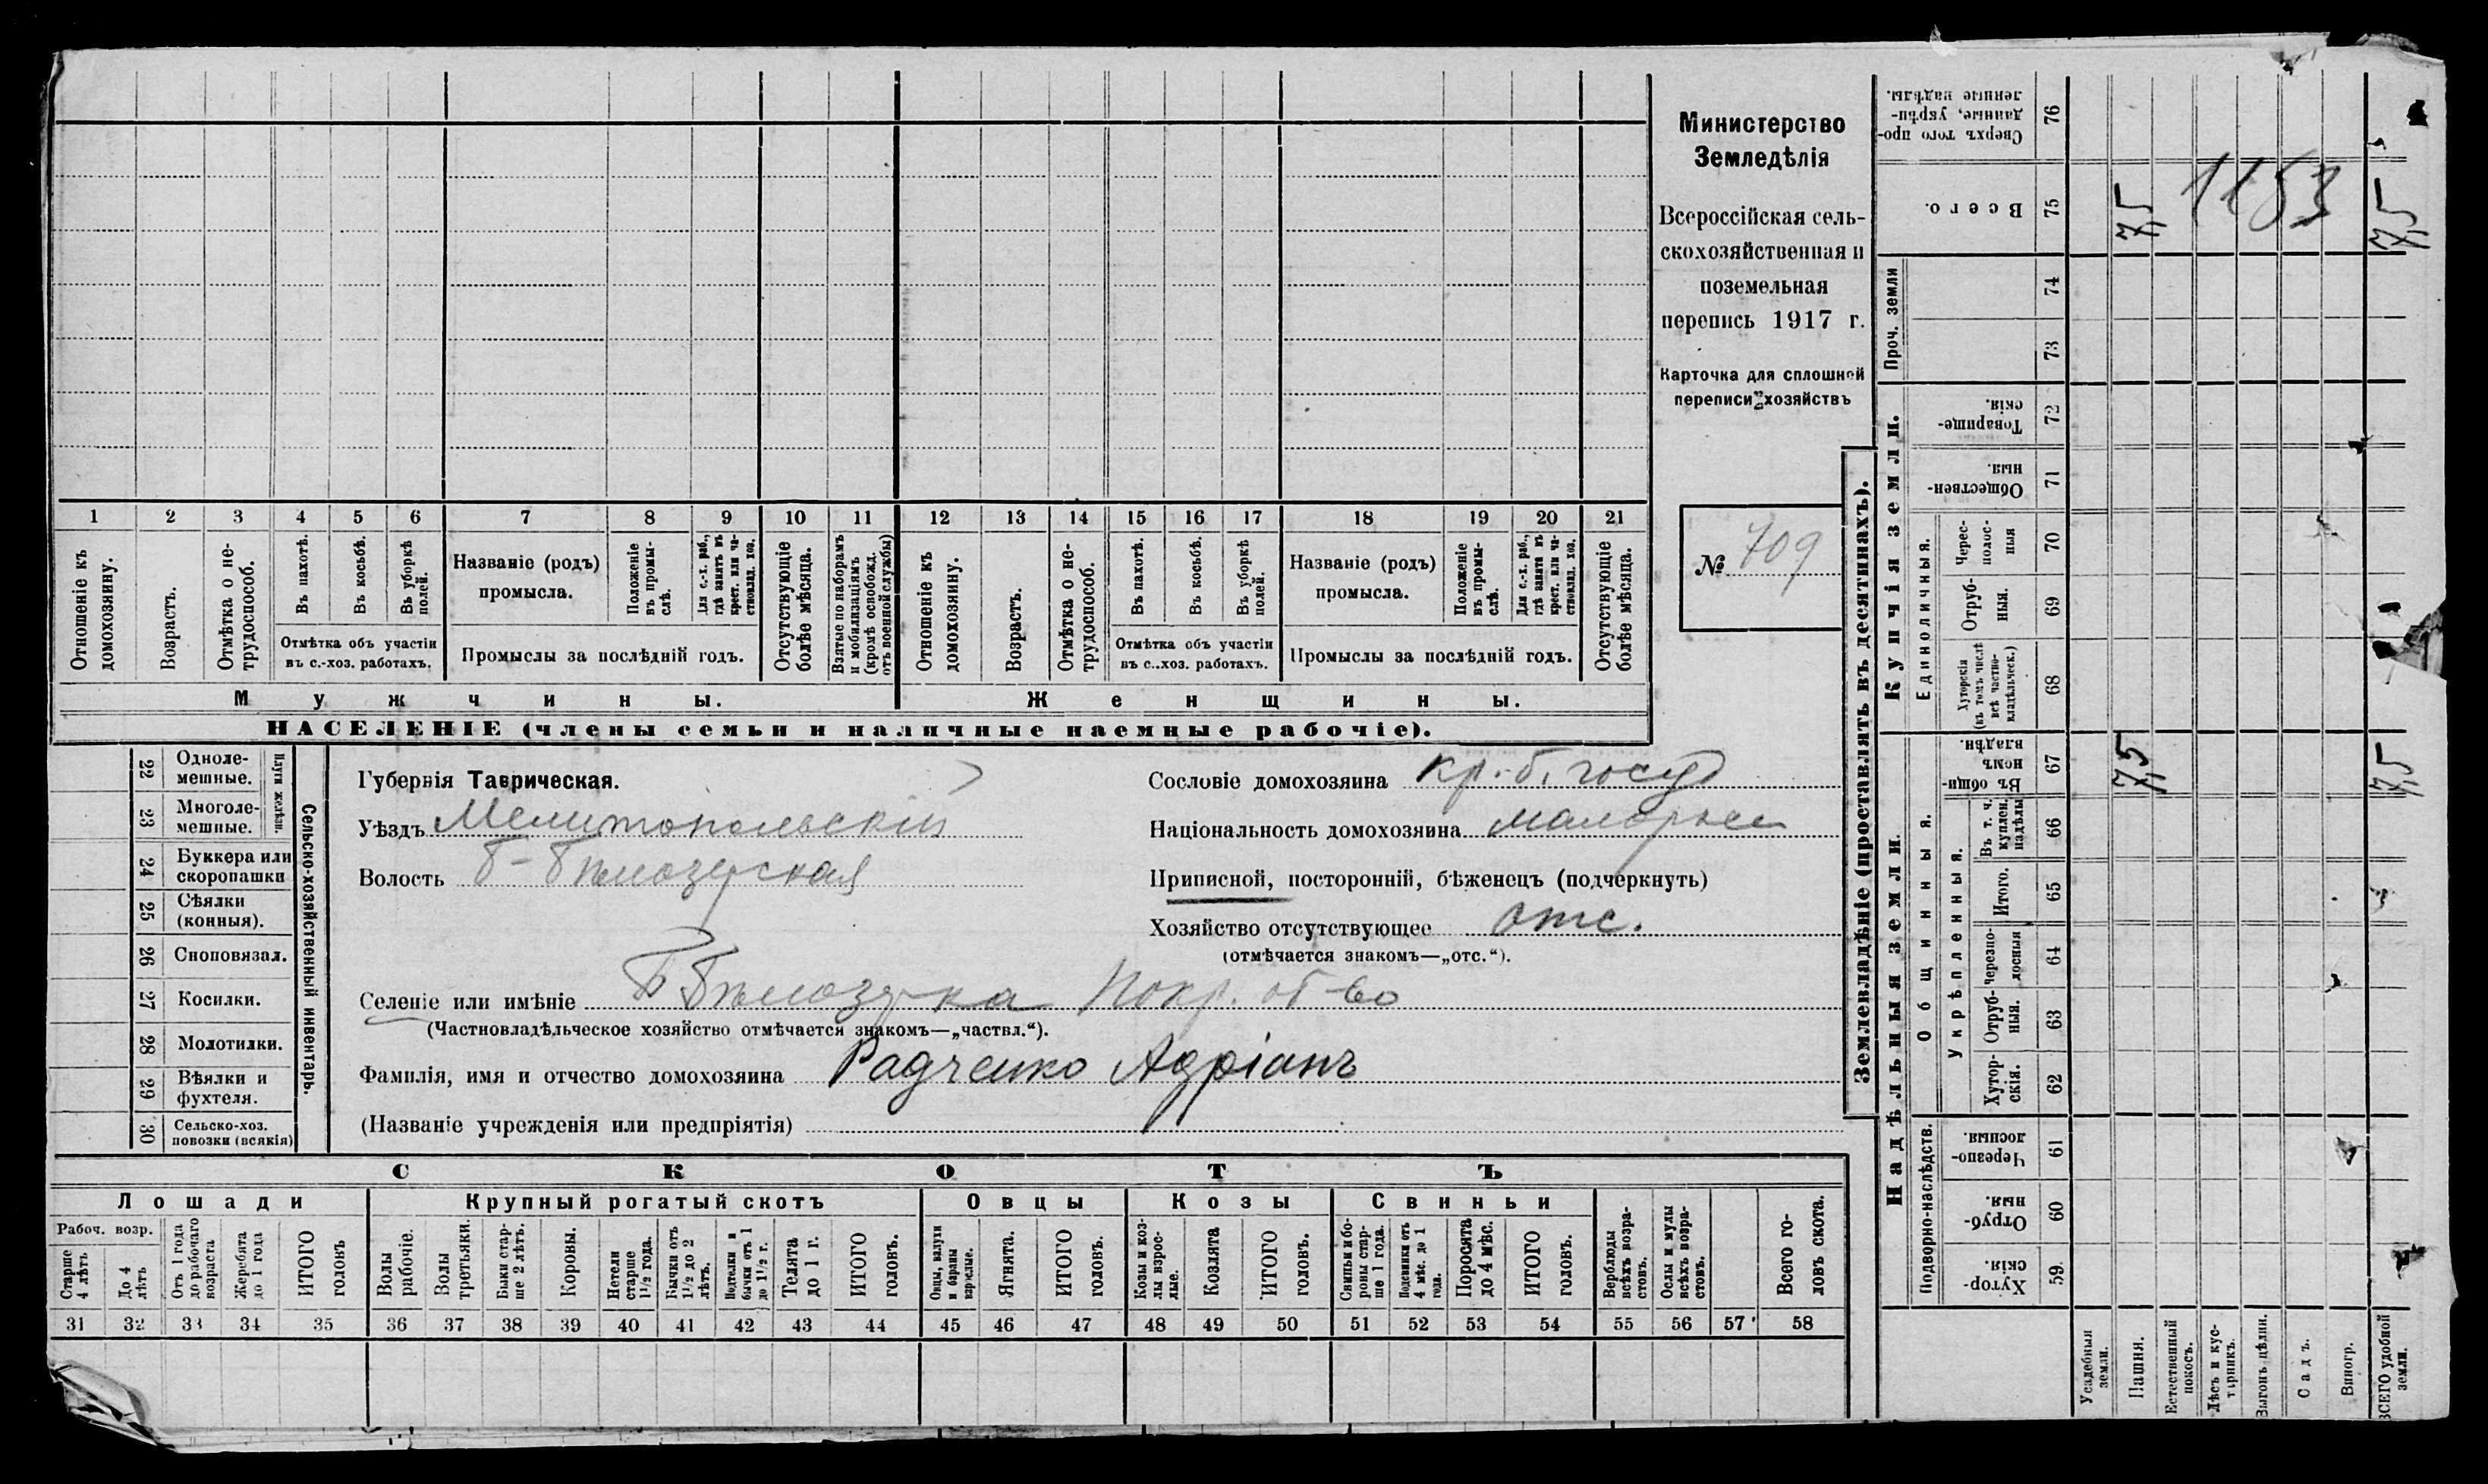 Министерство
Земледѣлія
Всероссійская сель-
скохозяйственная и
поземельная
перепись 1917 г.
Карточка для сплошной
переписи хозяйствъ
№ 709
1 2 3 4 5 6 7 8 9 10 11 12 13 14 15 16 17 18 19 20 21
Отношеніе къ домохозяину.
Возрастъ.
Отмѣтка о не-трудоспособ.
Въ пахотѣ.
Въ косьбѣ.
Въ уборкѣ полей.
Отмѣтка объ участіи
въ с.-хоз. работахъ.
Названіе (родъ)
промысла.
Положеніе въ промы-слѣ.
Для с.-х. раб., гдѣ занятъ въ крест. или ча-ствовлад. хоз.
Промыслы за послѣдній годъ.
Отсутствующіе болѣе мѣсяца.
Взятые по наборамъ и мобилизаціямъ (кромѣ освобожд. отъ военной службы)
Отношеніе къ домохозяину.
Возрастъ.
Отмѣтка о не-трудоспособ.
Въ пахотѣ.
Въ косьбѣ.
Въ уборкѣ полей.
Отмѣтка объ участіи
въ с.-хоз. работахъ.
Названіе (родъ)
промысла.
Положеніе въ промы-слѣ.
Для с.-х. раб., гдѣ занята въ крест. или ча-ствовлад. хоз.
Промыслы за послѣдній годъ.
Отсутствующіе болѣе мѣсяца.
Мужчины.
Женщины.
НАСЕЛЕНІЕ (члены семьи и наличные наемные рабочіе).
Сельско-хозяйственный инвентарь.
Плуги желѣзн.
22 Одноле-мешные.
23 Многоле-мешные.
24 Буккера или скоропашки
25 Сѣялки (конныя).
26 Сноповязал.
27 Косилки.
28 Молотилки.
29 Вѣялки и фухтеля.
30 Сельско-хоз. повозки (всякія)
Губернія Таврическая.
Уѣздъ Мелитопольскій
Волость Б-Бѣлозерская
Сословіе домохозяина кр. б. госуд
Національность домохозяина малоросс
Приписной, посторонній, бѣженецъ (подчеркнуть)
Хозяйство отсутствующее отс.
(отмѣчается знакомъ—„отс.“).
Селеніе или имѣніе Б Бѣлозерка Покр. об-во
(Частновладѣльческое хозяйство отмѣчается знакомъ—„частвл.“).
Фамилія, имя и отчество домохозяина Радченко Адріанъ
(Названіе учрежденія или предпріятія)
СКОТЪ
Лошади
Крупный рогатый скотъ
Овцы
Козы
Свиньи
Рабоч. возр.
Старше 4 лѣтъ
До 4 лѣтъ
Отъ 1 года до рабочаго возраста
Жеребята до 1 года
ИТОГО головъ
Волы рабочіе.
Волы третьяки.
Быки стар-ше 2 лѣтъ.
Коровы.
Нетели старше 1½ года.
Бычки отъ 1½ до 2 лѣтъ.
Подтелки и бычки отъ 1 до 1½ г.
Телята до 1 г.
ИТОГО головъ.
Овцы, валухи и бараны взрослые.
Ягнята.
ИТОГО головъ.
Козы и коз-лы взрос-лые.
Козлята
ИТОГО головъ.
Свиньи и бо-ровы стар-ше 1 года.
Подсвинки отъ 4 мѣс. до 1 года.
Поросята до 4 мѣс.
ИТОГО головъ.
Верблюды всѣхъ возра-стовъ.
Ослы и мулы всѣхъ возра-стовъ.
Всего го-ловъ скота.
31 32 33 34 35 36 37 38 39 40 41 42 43 44 45 46 47 48 49 50 51 52 53 54 55 56 57 58
Землевладѣніе (проставлять въ десятинахъ).
Надѣльныя земли.
Купчія земли.
Проч. земли
Подворно-наслѣдств.
Общинныя.
Укрѣпленныя.
Единоличныя.
Сверхъ того про-данные, укрѣп-ленные надѣлы. 76
Всего. 75
74
73
Товарище-скія. 72
Обществен-ныя. 71
Черес-полос-ныя 70
Отруб-ныя. 69
Хуторскія (въ томъ числѣ всѣ частно-владѣльческ.) 68
Въ общин-номъ владѣн. 67
Въ т. ч. куплен. надѣлы 66
Итого. 65
Черезпо-лосныя 64
Отруб-ныя. 63
Хутор-скія. 62
Черезпо-лосныя. 61
Отруб-ныя. 60
Хутор-скія. 59
7,5
1153
7,5
7,5
7,5
Усадебныя земли.
Пашня.
Естественный покосъ.
Лѣсъ и кус-тарникъ.
Выгонъ цѣлин.
Садъ.
Виногр.
ВСЕГО удобной земли.